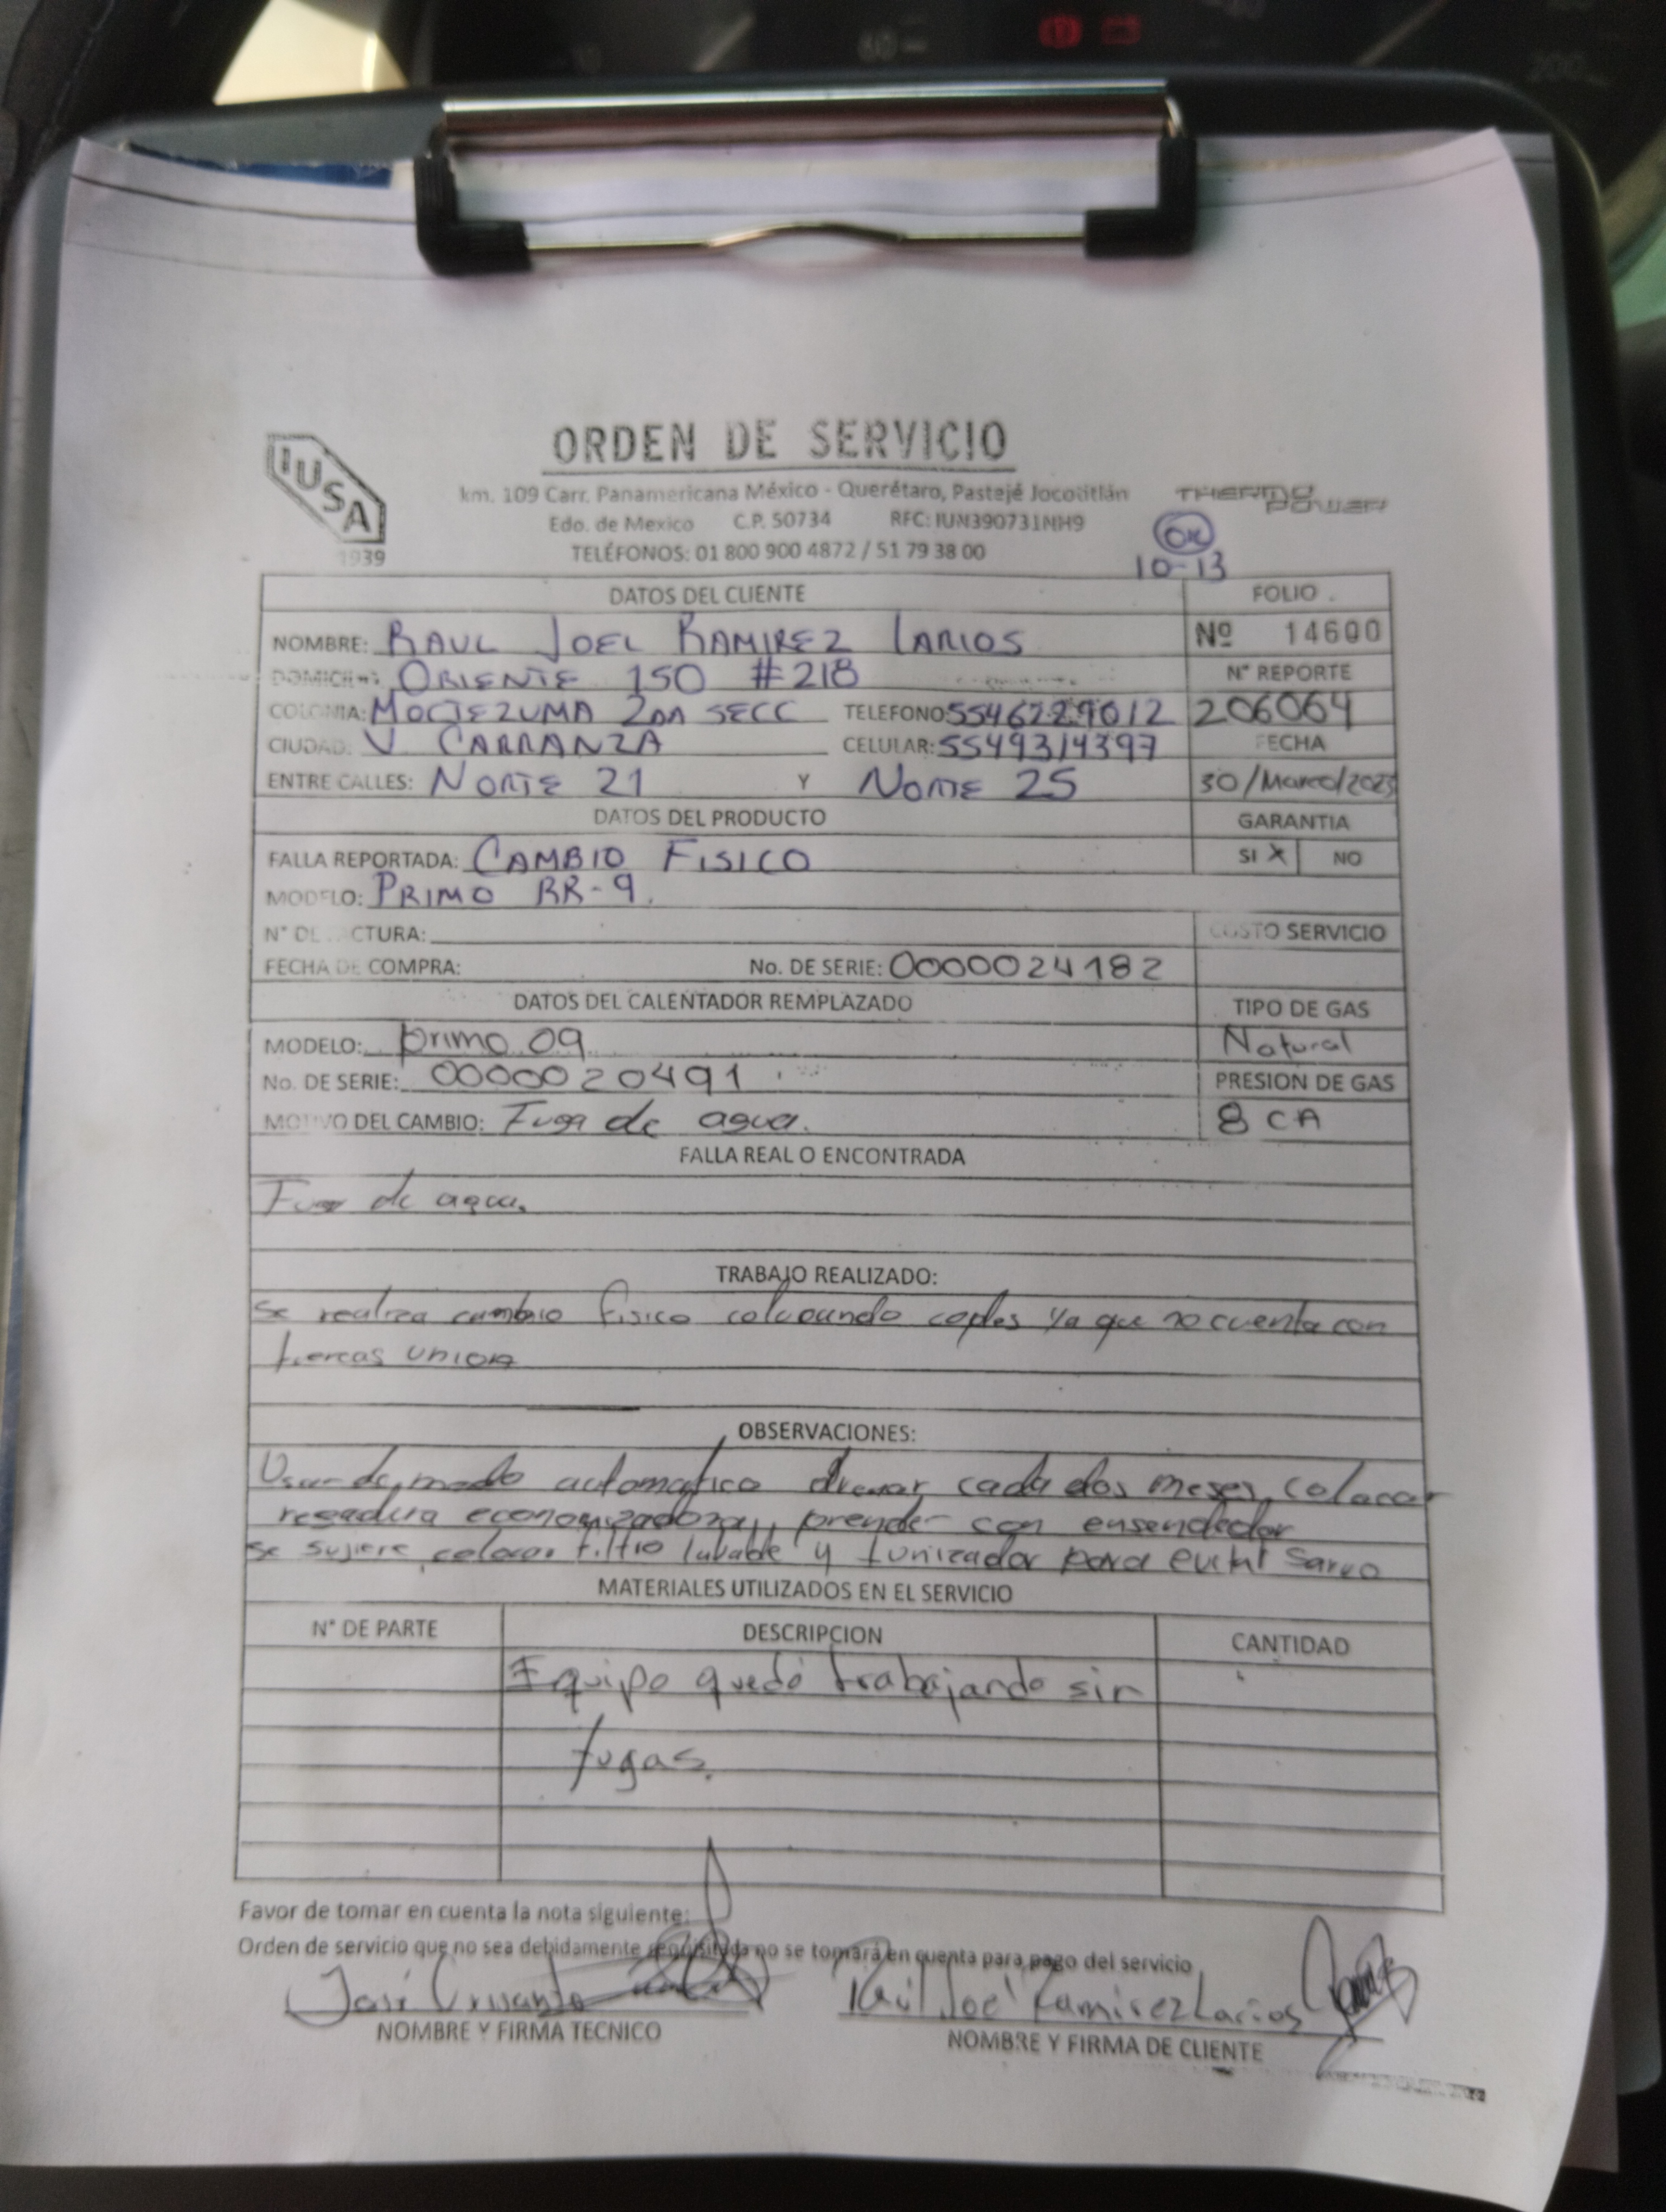 IUSA
1939
ORDEN DE SERVICIO
km. 109 Carr. Panamericana México - Querétaro, Pastejé Jocotitlán
Edo. de Mexico C.P. 50734 RFC: IUN390731NH9
TELÉFONOS: 01 800 900 4872 / 51 79 38 00
THERMO POWER
OK
10-13
DATOS DEL CLIENTE
FOLIO
NOMBRE: RAUL JOEL RAMIREZ LARIOS
Nº 14600
DOMICILIO: ORIENTE 150 #218
N° REPORTE
COLONIA: MOCTEZUMA 2DA SECC TELEFONO: 5546229612
206064
CIUDAD: V CARRANZA CELULAR: 5549314397
FECHA
ENTRE CALLES: NORTE 21 Y NORTE 25
30/Marzo/2023
DATOS DEL PRODUCTO
GARANTIA
FALLA REPORTADA: CAMBIO FISICO
SI X NO
MODELO: PRIMO RR-9.
N° DE FACTURA:
COSTO SERVICIO
FECHA DE COMPRA: No. DE SERIE: 0000024182
DATOS DEL CALENTADOR REMPLAZADO
TIPO DE GAS
MODELO: primo 09
Natural
No. DE SERIE: 0000020491
PRESION DE GAS
MOTIVO DEL CAMBIO: Fuga de agua.
8 CA
FALLA REAL O ENCONTRADA
Fuga de agua.
TRABAJO REALIZADO:
se realiza cambio fisico colocando coples ya que no cuenta con
tuercas union
OBSERVACIONES:
Usar de modo automatico drenar cada dos meses, colocar
regadera economizadora, prender con ensendedor
se sujiere colocar filtro lavable y ionizador para evitar sarro
MATERIALES UTILIZADOS EN EL SERVICIO
N° DE PARTE DESCRIPCION CANTIDAD
Equipo quedó trabajando sin
fugas.
Favor de tomar en cuenta la nota siguiente:
Orden de servicio que no sea debidamente requisitada no se tomará en cuenta para pago del servicio
José Crisanto
Raúl Joel Ramirez Larios
NOMBRE Y FIRMA TECNICO
NOMBRE Y FIRMA DE CLIENTE